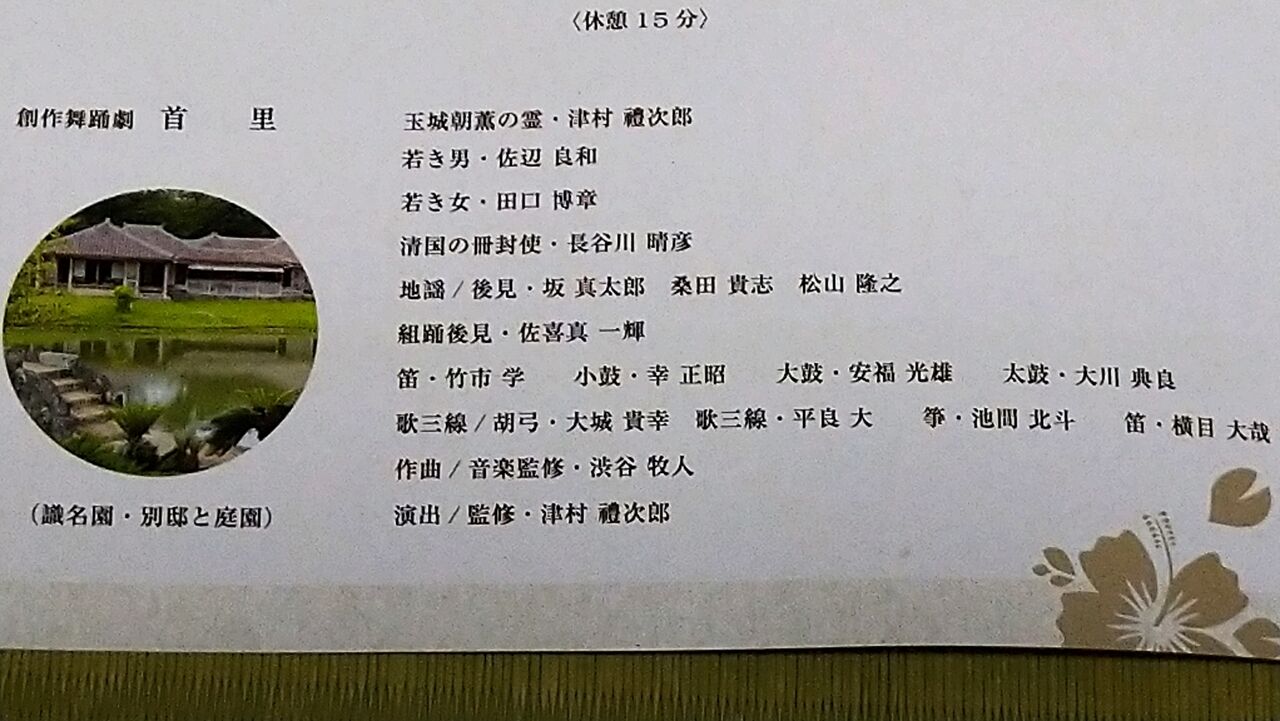 〈休憩 15 分〉
創作舞踊劇 首 里
玉城朝薫の霊・津村 禮次郎
若き男・佐辺 良和
若き女・田口 博章
清国の冊封使・長谷川 晴彦
地謡 / 後見・坂 真太郎 桑田 貴志 松山 隆之
組踊後見・佐喜真 一輝
笛・竹市 学 小鼓・幸 正昭 大鼓・安福 光雄 太鼓・大川 典良
歌三線 / 胡弓・大城 貴幸 歌三線・平良 大 箏・池間 北斗 笛・横目 大哉
作曲 / 音楽監修・渋谷 牧人
演出 / 監修・津村 禮次郎
（識名園・別邸と庭園）